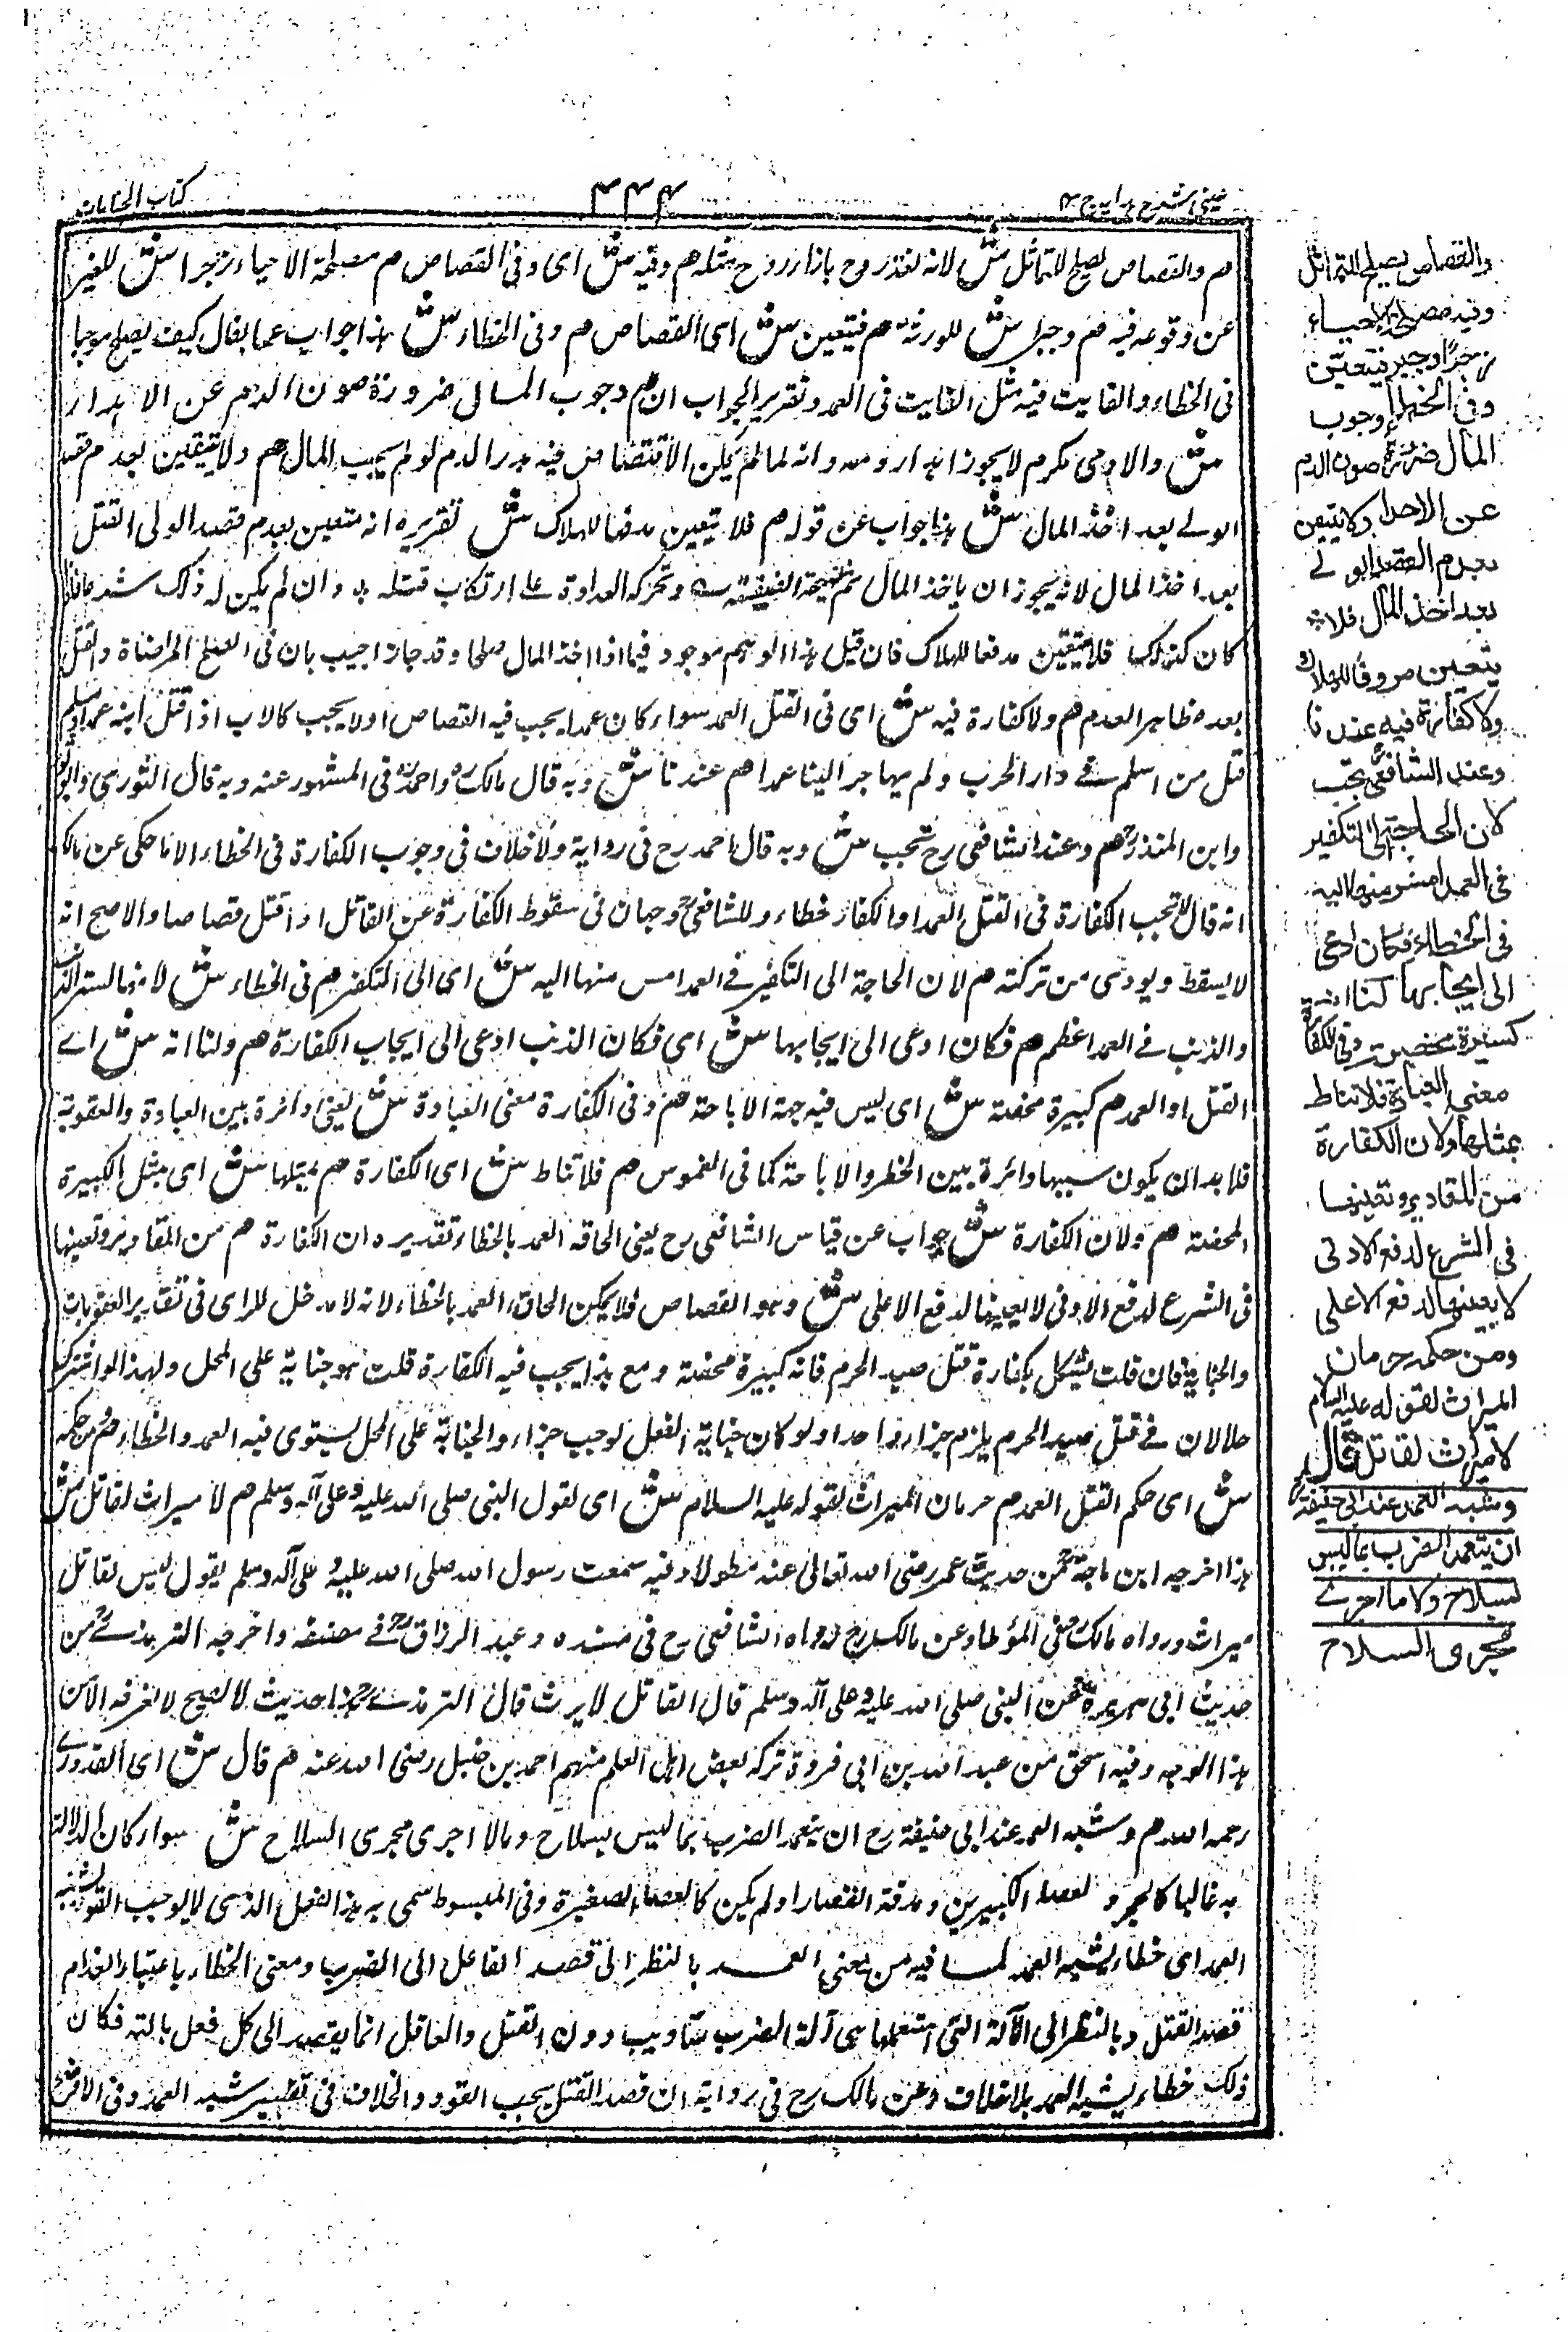 عینی شرح ہدایہ ج ۴
۴۴۴
کتاب الجنایات
م والقصاص یصلح للتماثل ش لانہ لغذر روح بازاء روح بمثلہ م وفیہ ش ای وفی القصاص م مصلحۃ الاحیاء زجرا ش للغیر
عن وقوعہ فیہ م وجبرا ش للورثۃ م فیتعین ش ای القصاص م وفی الخطاء ش ہذا جواب عما یقال کیف یصلح موجبا
فی الخطاء والفایت فیہ مثل الفایت فی العمد وتقریر الجواب ان م وجوب المال ضرورۃ صون الدم عن الاہدار
ش والادمی مکرم لا یجوز اہدار دمہ وانہ لما لم یکن الاقتصاص فیہ ہدر الدم لو لم یجب المال م ولا یتیقن بعدم قصد
الولے بعد اخذ المال ش ہذا جواب عن قولہ م فلا یتعین مدفعا للہلاک ش تقریرہ انہ متعین بعدم قصد الولی القتل
بعد اخذ المال لانہ یجوز ان یاخذ المال ثم وتحرکہ العداوۃ علے ارتکاب قتلہ وان لم یکن لہ ذلک
کان کذلک فلا یتیقن مدفعا للہلاک فان قیل ہذا الوہم موجود فیما اذا اخذ المال صلحا وقد جاز اجیب بان فی الصلح المراضاۃ والقتل
بعدہ ظاہر العدم م ولا کفارۃ فیہ ش ای فی القتل العمد سواء کان عمدا یجب فیہ القصاص اولا یجب کالاب اذا قتل ابنہ عمدا
قتل من اسلم فے دار الحرب ولم یہاجر الینا عمدا م عندنا ش وبہ قال مالک واحمد فی المشہور عنہ وبہ قال الثوری
وابن المنذر م وعند الشافعی رح تجب ش وبہ قال احمد رح فی روایۃ ولا خلاف فی وجوب الکفارۃ فی الخطاء الا ما حکی عن مالک
انہ قال لا تجب الکفارۃ فی القتل العمد اوالکفار خطاء وللشافعی وجہان فی سقوط الکفارۃ عن القاتل اذا قتل قصاصا والاصح انہ
لا یسقط ویودی من ترکتہ م لان الحاجۃ الی التکفیر فے العمد امس منہا الیہ ش ای الی التکفیر م فی الخطاء ش لانہا لستر الذنب
والذنب فے العمد اعظم م فکان ادعی الی ایجابہا ش ای فکان الذنب ادعی الی ایجاب الکفارۃ م ولنا انہ ش اے
القتل او العمد م کبیرۃ محضۃ ش ای لیس فیہ جہۃ الاباحۃ م وفی الکفارۃ معنی العبادۃ ش یعنی دائرۃ بین العبادۃ والعقوبۃ
فلا بد ان یکون سببہا دائرۃ بین الحظر والاباحۃ کما فی الغموس م فلا تناط ش ای الکفارۃ م بمثلہا ش ای بمثل الکبیرۃ
المحضۃ م ولان الکفارۃ ش جواب عن قیاس الشافعی رح یعنی الحاقہ العمد بالخطاء تقدیرہ ان الکفارۃ م من المقادیر وتعینہا
فی الشرع لدفع الادنی لا یعینہا لدفع الاعلی ش وہو القصاص فلا یمکن الحاق العمد بالخطاء لانہ لا مدخل للرای فی تقدیر العقوبات
والجنایۃ فان قلت یشکل بکفارۃ قتل صید الحرم فانہ کبیرۃ محضۃ ومع ہذا یجب فیہ الکفارۃ قلت ہو جنایۃ علی المحل ولہذا لو اشترک
حلالان فے قتل صید الحرم یلزم جزاء واحد ولو کان جنایۃ الفعل لوجب جزاء والجنایۃ علی المحل یستوی فیہ العمد والخطاء م ومن حکمہ
ش ای حکم القتل العمد م حرمان المیراث لقولہ علیہ السلام ش ای لقول النبی صلی اللہ علیہ وعلی آلہ وسلم م لا میراث لقاتل ش
ہذا اخرجہ ابن ماجۃ عن حدیث عمر رضی اللہ تعالی عنہ مطولا وفیہ سمعت رسول اللہ صلی اللہ علیہ وعلی آلہ وسلم یقول لیس لقاتل
میراث ورواہ مالک فی المؤطا وعن مالک رواہ الشافعی رح فی مسندہ وعبد الرزاق فے مصنفہ واخرجہ الترمذے من
حدیث ابی ہریرۃ عن النبی صلی اللہ علیہ وعلی آلہ وسلم قال القاتل لا یرث قال الترمذے ہذا حدیث لا یصح لا نعرفہ الا من
ہذا الوجہ وفیہ اسحق بن عبد اللہ بن ابی فروۃ ترکہ بعض اہل العلم منہم احمد بن حنبل رضی اللہ عنہ م قال ش ای القدورے
رحمہ اللہ م وشبہ العمد عند ابی حنیفۃ رح ان یتعمد الضرب بما لیس بسلاح ومالا اجری مجری السلاح ش سواء کان
بہ غالبا کالحجر والعصا الکبیرین ومدقۃ القصار او لم یکن کالعصا الصغیرۃ وفی المبسوط سمی بہ ہذا الفعل الذی لا یوجب القود
العمد ای خطاء یشبہ العمد لما فیہ من معنی العمد بالنظر الی قصد الفاعل الی الضرب ومعنی الخطاء باعتبار انعدام
قصد القتل وبالنظر الی الآلۃ التی استعملہا ہی آلۃ الضرب بتادیب دون القتل والعاقل انما یقصد الی کل فعل بالتہ فکان
ذلک خطاء یشبہ العمد بلا خلاف وعن مالک رح فی روایۃ ان قصد القتل یجب القود والخلاف فی تفسیر شبہ العمد وفی
والقصاص یصلح للتماثل
وفیہ مصلحۃ الاحیاء
زجرا وجبرا فیتعین
وفی الخطأ وجوب
المال ضرورۃ صون الدم
عن الاہدار ولا یتیقن
بعدم القصد الولے
بعد اخذ المال فلا
یتعین مدفعا للہلاک
ولا کفارۃ فیہ عندنا
وعند الشافعی تجب
لان الحاجۃ الی التکفیر
فی العمد امس منہا الیہ
فی الخطاء فکان ادعی
الی ایجابہا لنا انہ
کبیرۃ محضۃ وفی الکفارۃ
معنی العبادۃ فلا تناط
بمثلہا ولان الکفارۃ
من المقادیر وتعینہا
فی الشرع لدفع الادنی
لا یعینہا لدفع الاعلی
ومن حکمہ حرمان
المیراث لقولہ علیہ السلام
لا میراث لقاتل قال
وشبہ العمد عند ابی حنیفۃ
ان یتعمد الضرب بما لیس
بسلاح ولا ما اجرے
مجری السلاح